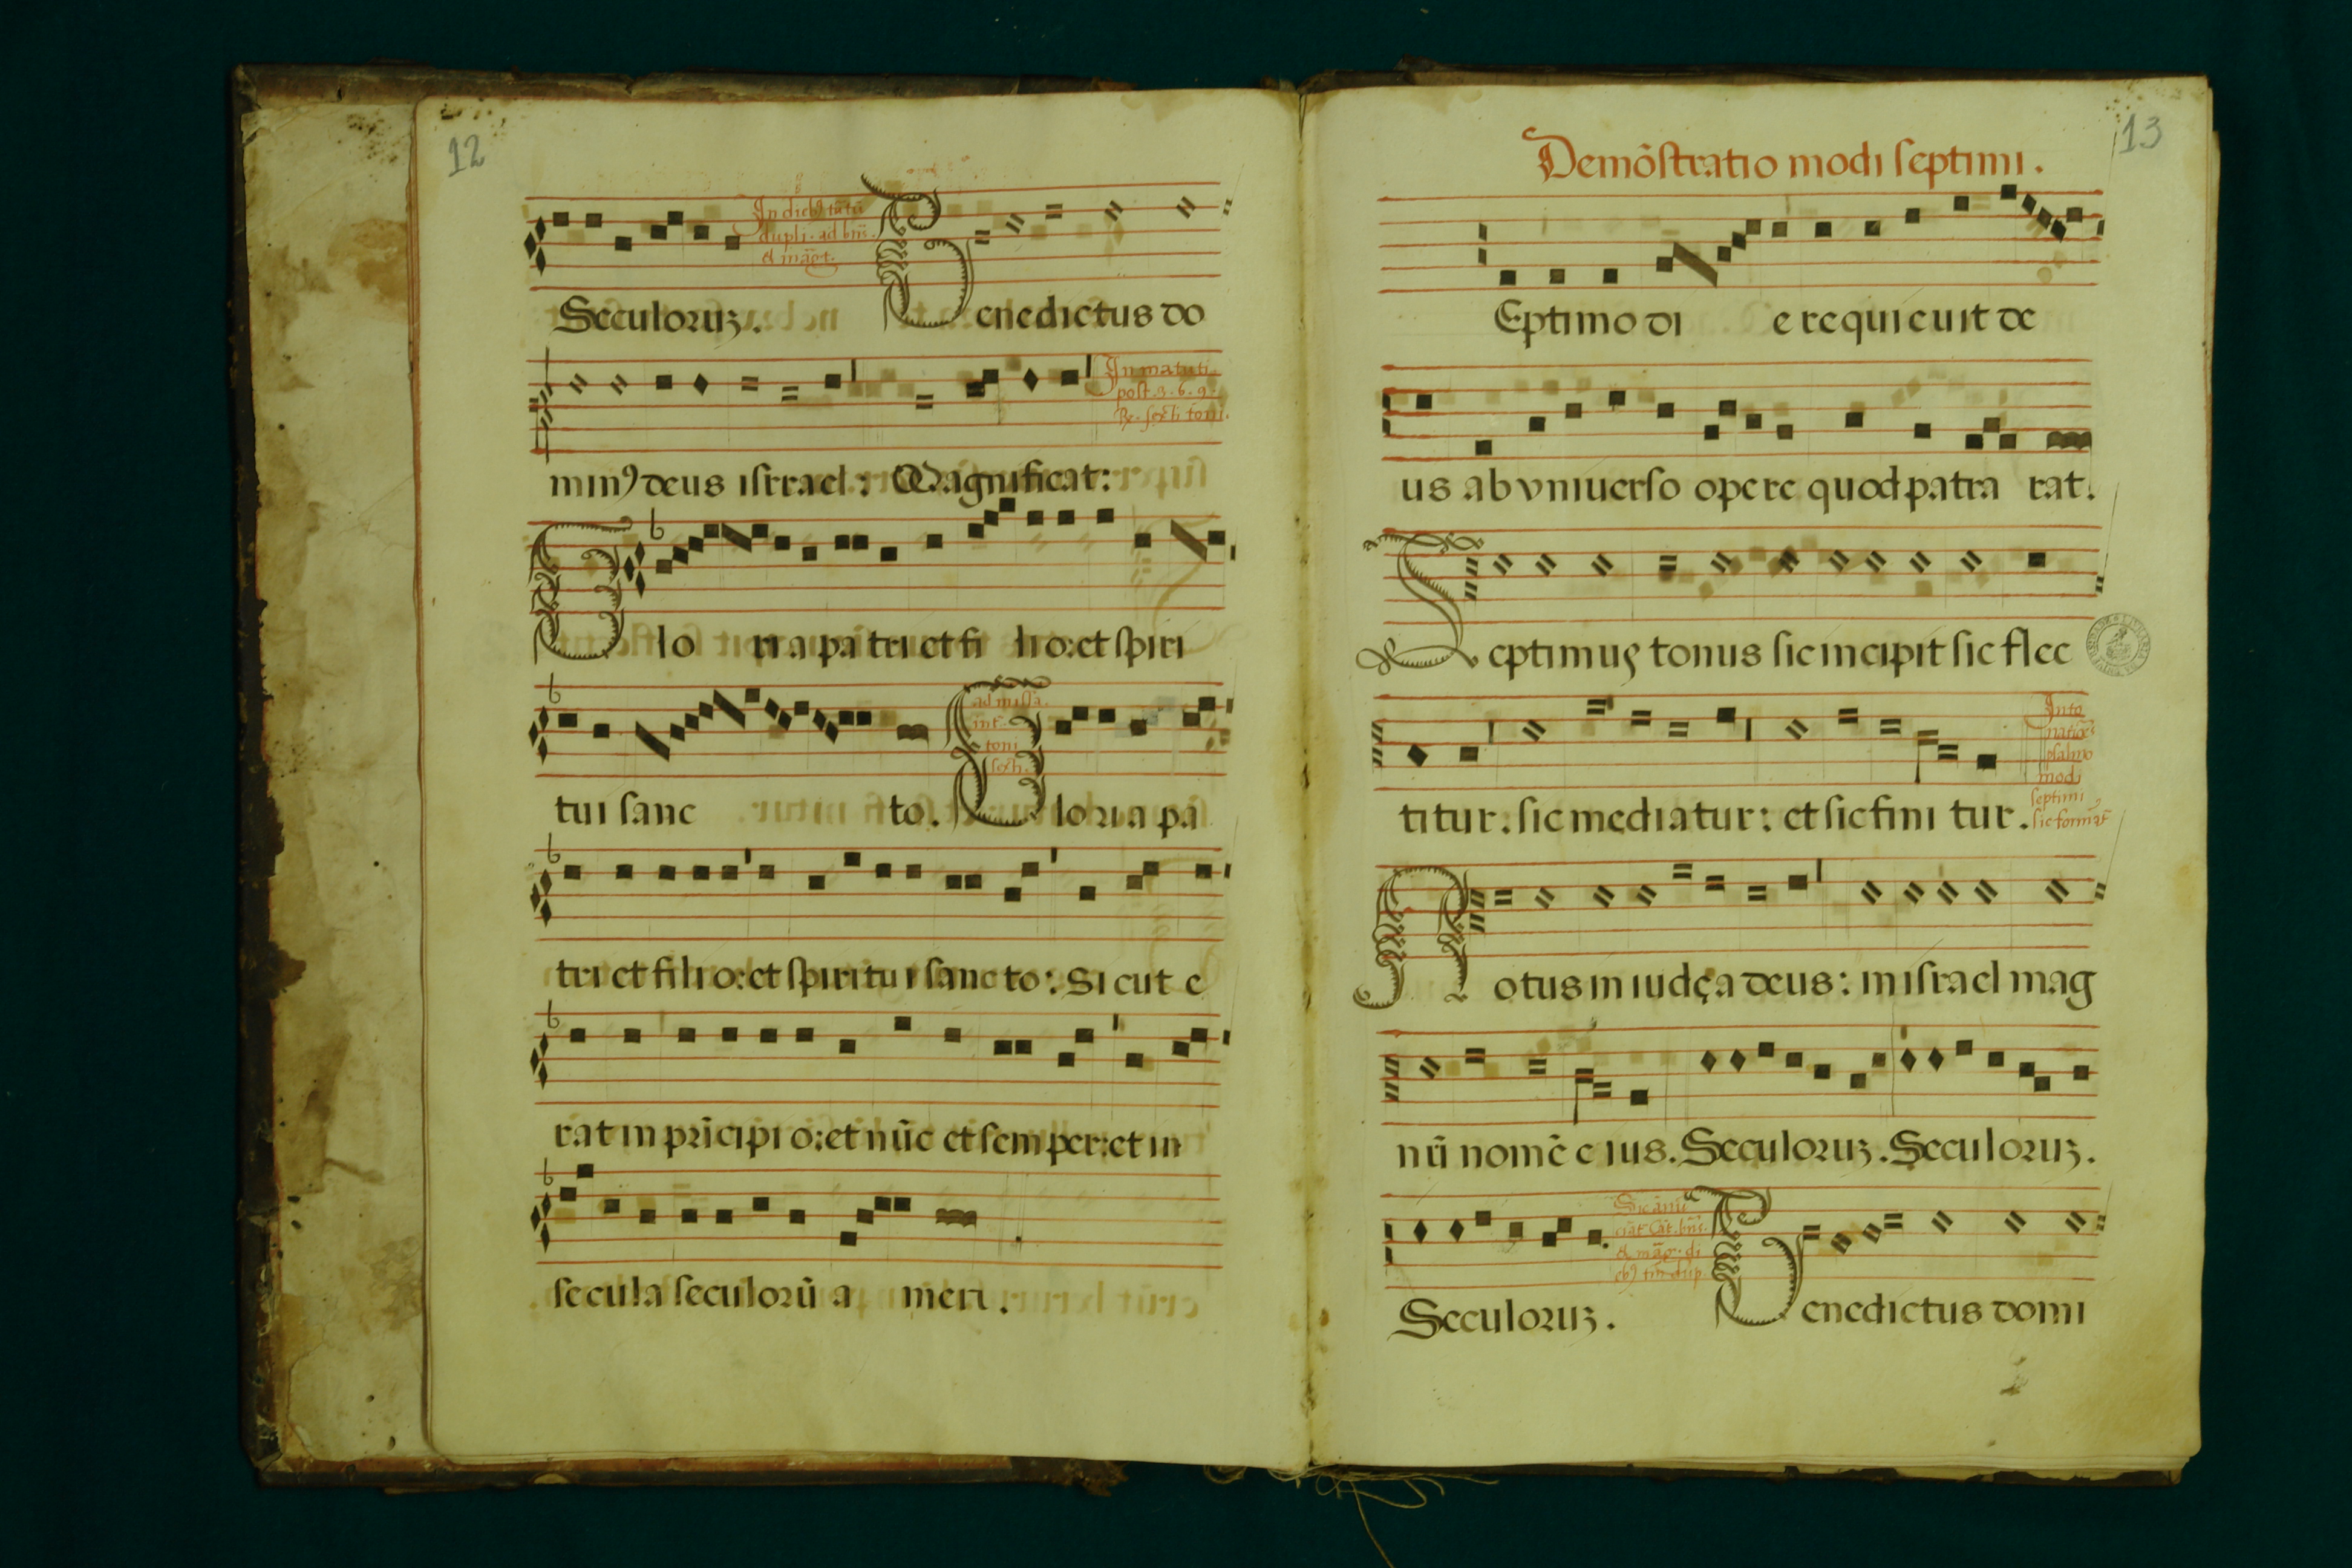 12
In dieb9 tātū
dupli. ad bn̄s.
& māgt.
Seculoruʒ. Benedictus do
In matuti
post. 3. 6. 9.
min9 deus isrrael: Magnificat:
Gloria patri et filio: et spiri
ad missā
toni
tui sancto. Gloria pa
tri et filio: et spiritui sancto: Sicut e
rat in prīcipio: et nūc et semper: et in
secula seculorū amen.
13
Demōstratio modi septimi.
Eptimo die requieuit de
us ab vniuerso opere quod patrarat.
Septimus tonus sic incipit sic flec
Into
psalmo
modi
septimi
titur. sic mediatur: et sic finitur.
Notus in iudça deus: in israel mag
nū nomē eius. Seculoruʒ. Seculoruʒ.
Seculoruʒ. Benedictus domi